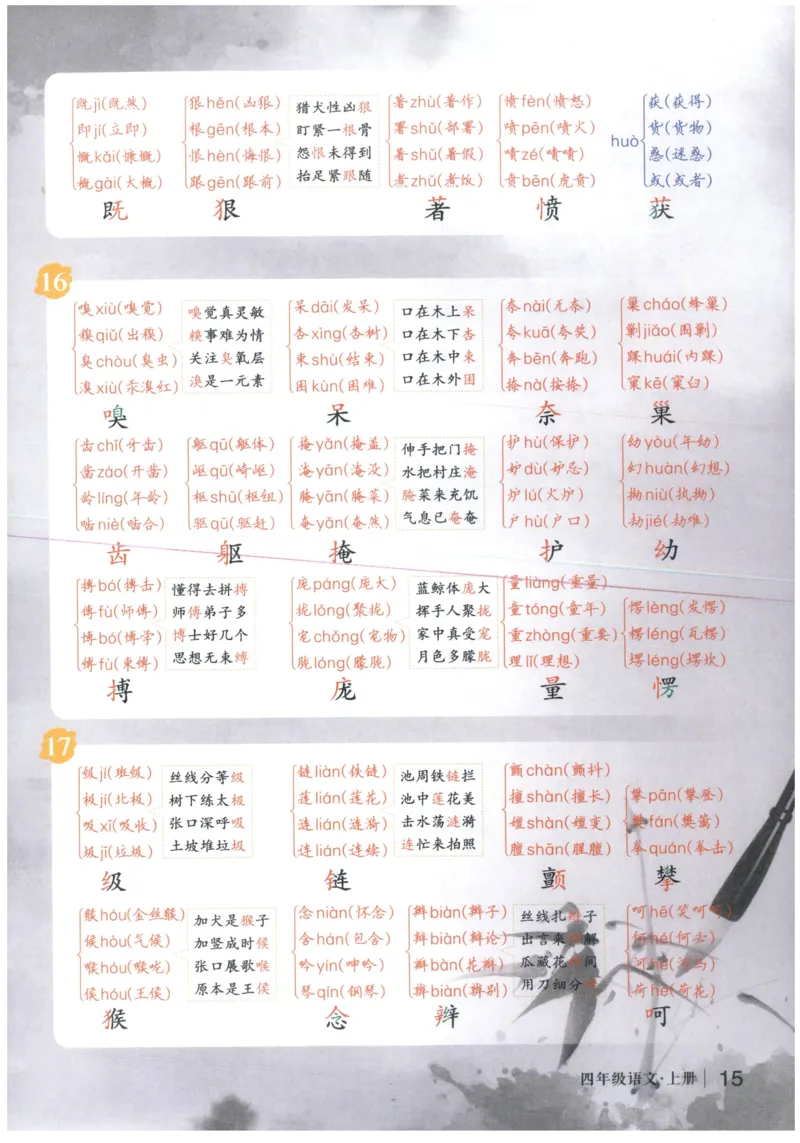 既jì(既然)
即jí(立即)
慨kǎi(慷慨)
概gài(大概)
既
狠hěn(凶狠)
根gēn(根本)
恨hèn(悔恨)
跟gēn(跟前)
狠
猎犬性凶狠
盯紧一根骨
怨恨未得到
抬足紧跟随
著zhù(著作)
署shǔ(部署)
暑shǔ(暑假)
煮zhǔ(煮饭)
著
愤fèn(愤怒)
喷pēn(喷火)
啧zé(啧啧)
贲bēn(虎贲)
愤
huò
获(获得)
货(货物)
惑(迷惑)
或(或者)
获
16
嗅xiù(嗅觉)
糗qiǔ(出糗)
臭chòu(臭虫)
溴xiù(汞溴红)
嗅
嗅觉真灵敏
糗事难为情
关注臭氧层
溴是一元素
呆dāi(发呆)
杏xìng(杏树)
束shù(结束)
困kùn(困难)
呆
口在木上呆
口在木下杏
口在木中束
口在木外困
奈nài(无奈)
夸kuā(夸奖)
奔bēn(奔跑)
捺nà(按捺)
奈
巢cháo(蜂巢)
剿jiǎo(围剿)
踝huái(内踝)
窠kē(窠臼)
巢
齿chǐ(牙齿)
凿záo(开凿)
龄líng(年龄)
啮niè(啮合)
齿
躯qū(躯体)
岖qū(崎岖)
枢shū(枢纽)
驱qū(驱赶)
躯
掩yǎn(掩盖)
淹yān(淹没)
腌yān(腌菜)
奄yǎn(奄然)
掩
伸手把门掩
水把村庄淹
腌菜来充饥
气息已奄奄
护hù(保护)
妒dù(妒忌)
炉lú(火炉)
户hù(户口)
护
幼yòu(年幼)
幻huàn(幻想)
拗niù(执拗)
劫jié(劫难)
幼
搏bó(搏击)
傅fù(师傅)
博bó(博学)
缚fù(束缚)
搏
懂得去拼搏
师傅弟子多
博士好几个
思想无束缚
庞páng(庞大)
拢lǒng(聚拢)
宠chǒng(宠物)
胧lóng(朦胧)
庞
蓝鲸体庞大
挥手人聚拢
家中真受宠
月色多朦胧
量liàng(重量)
童tóng(童年)
重zhòng(重要)
理lǐ(理想)
量
愣lèng(发愣)
楞léng(瓦楞)
塄léng(塄坎)
愣
17
级jí(班级)
极jí(北极)
吸xī(吸收)
圾jī(垃圾)
级
丝线分等级
树下练太极
张口深呼吸
土坡堆垃圾
链liàn(铁链)
莲lián(莲花)
涟lián(涟漪)
连lián(连续)
链
池周铁链拦
池中莲花美
击水荡涟漪
连忙来拍照
颤chàn(颤抖)
擅shàn(擅长)
嬗shàn(嬗变)
膻shān(腥膻)
颤
攀pān(攀登)
樊fán(樊篱)
拳quán(拳击)
攀
猴hóu(金丝猴)
候hòu(气候)
喉hóu(喉咙)
侯hóu(王侯)
猴
加犬是猴子
加竖成时候
张口展歌喉
原本是王侯
念niàn(怀念)
含hán(包含)
吟yín(呻吟)
琴qín(钢琴)
念
辫biàn(辫子)
辩biàn(辩论)
瓣bàn(花瓣)
辨biàn(辨别)
辫
丝线扎辫子
出言来辩解
瓜藏花瓣间
用刀细分辨
呵hē(笑呵呵)
何hé(何必)
河hé(河马)
荷hé(荷花)
呵
四年级语文·上册 15